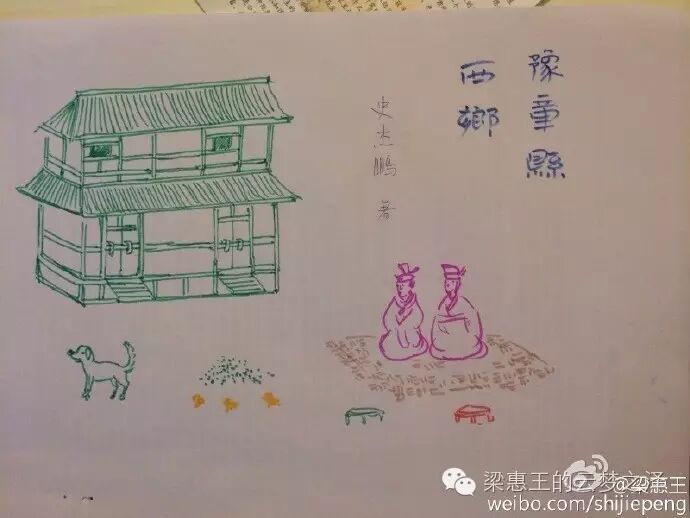 豫章縣
西鄉
史杰鹏 著
梁惠王的云梦之泽
@梁惠王
weibo.com/shijiepeng